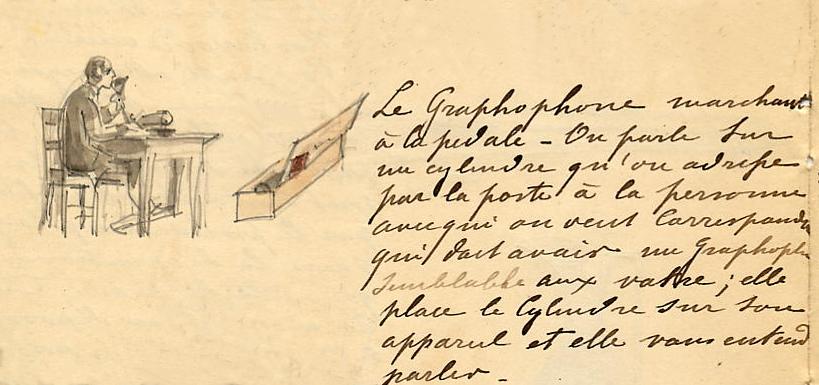 Le Graphophone marchant
à la pedale - On parle sur
un cylindre qu'on adresse
par la poste à la personne
avec qui on veut Correspondre
qui doit avoir un Graphoph
semblable aux votre ; elle
place le Cylindre sur son
appareil et elle vous entend
parler -